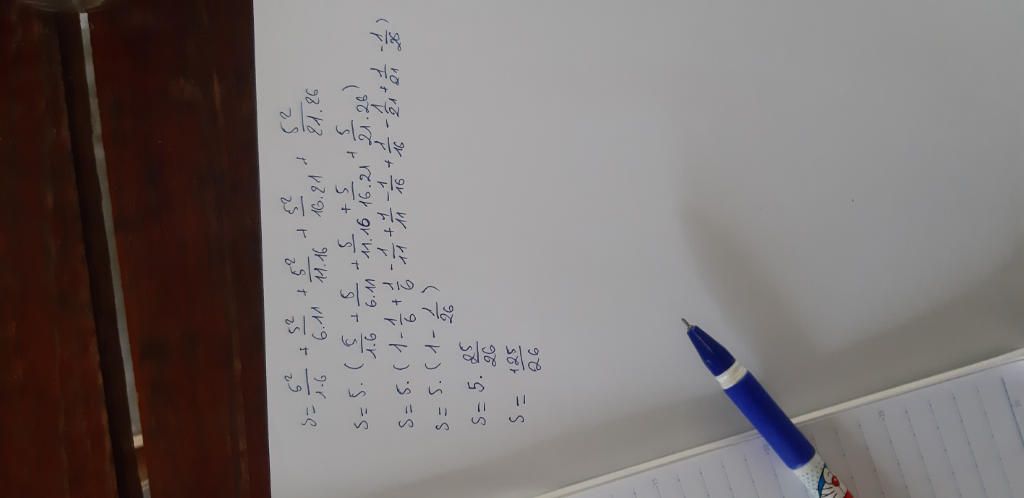 S = 5²/1.6 + 5²/6.11 + 5²/11.16 + 5²/16.21 + 5²/21.26
S = 5. ( 5/1.6 + 5/6.11 + 5/11.16 + 5/16.21 + 5/21.26 )
S = 5. ( 1 - 1/6 + 1/6 - 1/11 + 1/11 - 1/16 + 1/16 - 1/21 + 1/21 - 1/26 )
S = 5. ( 1 - 1/26 )
S = 5. 25/26
S = 125/26